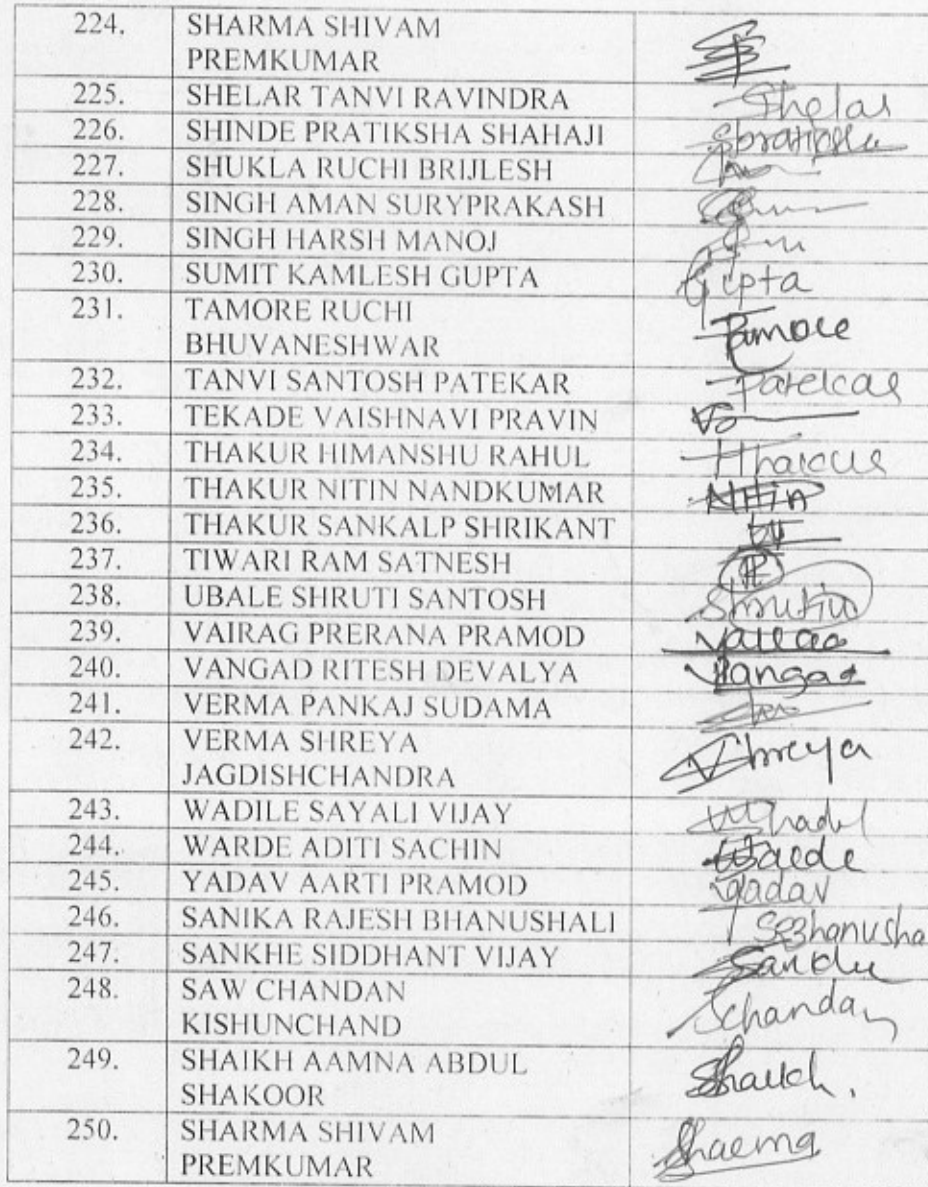 224. SHARMA SHIVAM
PREMKUMAR
225. SHELAR TANVI RAVINDRA Shelar
226. SHINDE PRATIKSHA SHAHAJI
227. SHUKLA RUCHI BRIJLESH
228. SINGH AMAN SURYPRAKASH
229. SINGH HARSH MANOJ
230. SUMIT KAMLESH GUPTA Gupta
231. TAMORE RUCHI
BHUVANESHWAR Tamore
232. TANVI SANTOSH PATEKAR Patekar
233. TEKADE VAISHNAVI PRAVIN
234. THAKUR HIMANSHU RAHUL Thakur
235. THAKUR NITIN NANDKUMAR Nitin
236. THAKUR SANKALP SHRIKANT
237. TIWARI RAM SATNESH
238. UBALE SHRUTI SANTOSH
239. VAIRAG PRERANA PRAMOD
240. VANGAD RITESH DEVALYA Vangad
241. VERMA PANKAJ SUDAMA
242. VERMA SHREYA
JAGDISHCHANDRA
243. WADILE SAYALI VIJAY
244. WARDE ADITI SACHIN Warde
245. YADAV AARTI PRAMOD Yadav
246. SANIKA RAJESH BHANUSHALI
247. SANKHE SIDDHANT VIJAY Sankhe
248. SAW CHANDAN
KISHUNCHAND Schandan
249. SHAIKH AAMNA ABDUL
SHAKOOR Shaikh.
250. SHARMA SHIVAM
PREMKUMAR Sharma